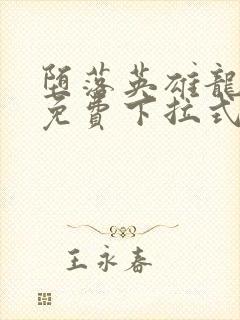 堕落英雄龍
免費下拉式
王永春